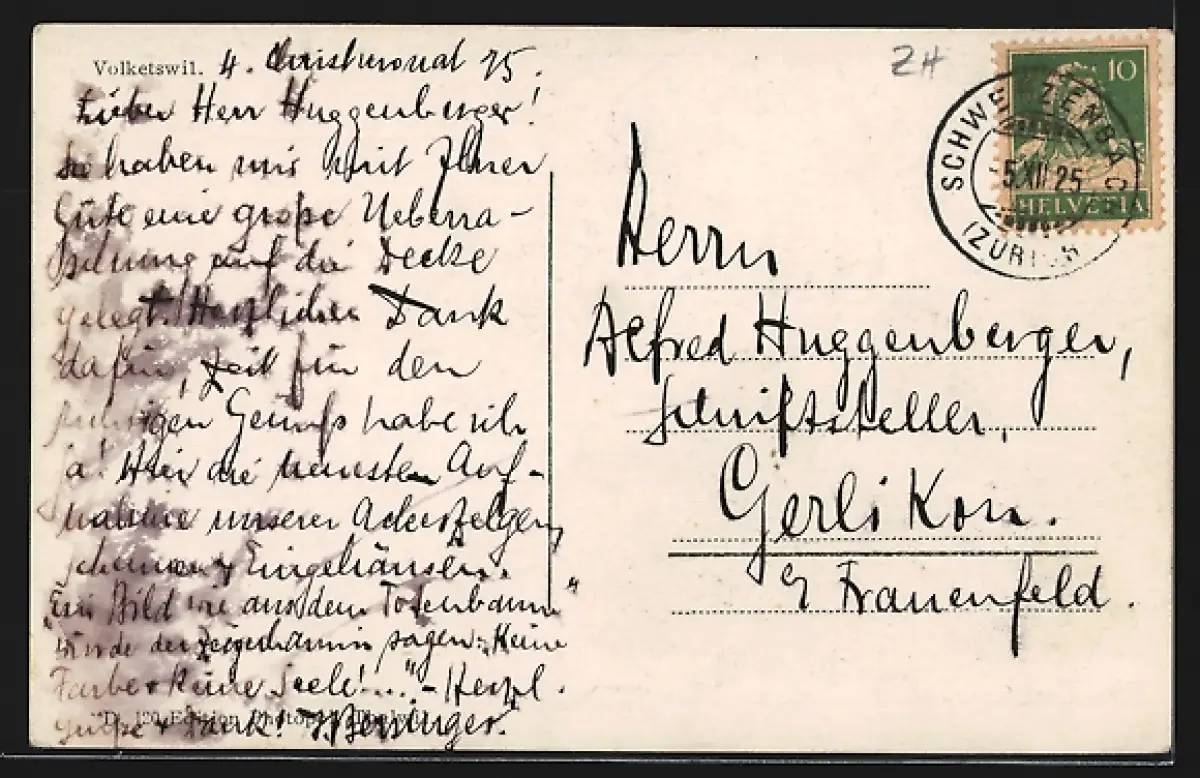 Volketswil. 4. Christmonat 25.
Lieber Herr Huggenberger!
Sie haben mir mit Ihrer
Güte eine große Ueberra-
schung auf die Decke
gelegt. Herzlichen Dank
dafür, Zeit für den
ruhigen Genuß habe ich
ja! Hier die neuesten Auf-
nahme unserer
scheunen &
"Ein Bild wie aus dem Totenbaum"
würde der sagen: "Keine
Farbe & keine Seele!..." - Herzl.
Grüße & Dank!
D. 120 Edition Photogl. Thalwil
ZH
10
HELVETIA
SCHWERZENBACH
5 XII 25
(ZÜRICH)
Herrn
Alfred Huggenberger,
Schriftsteller,
Gerlikon.
b/ Frauenfeld.